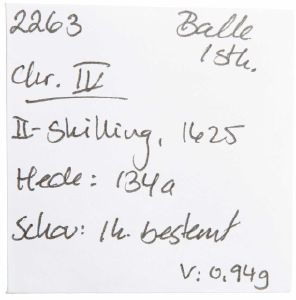 2263 Balle
1 stk.
Chr. IV
II-Skilling, 1625
Hede: 134a
Schou: Ik. bestemt
V: 0.94g